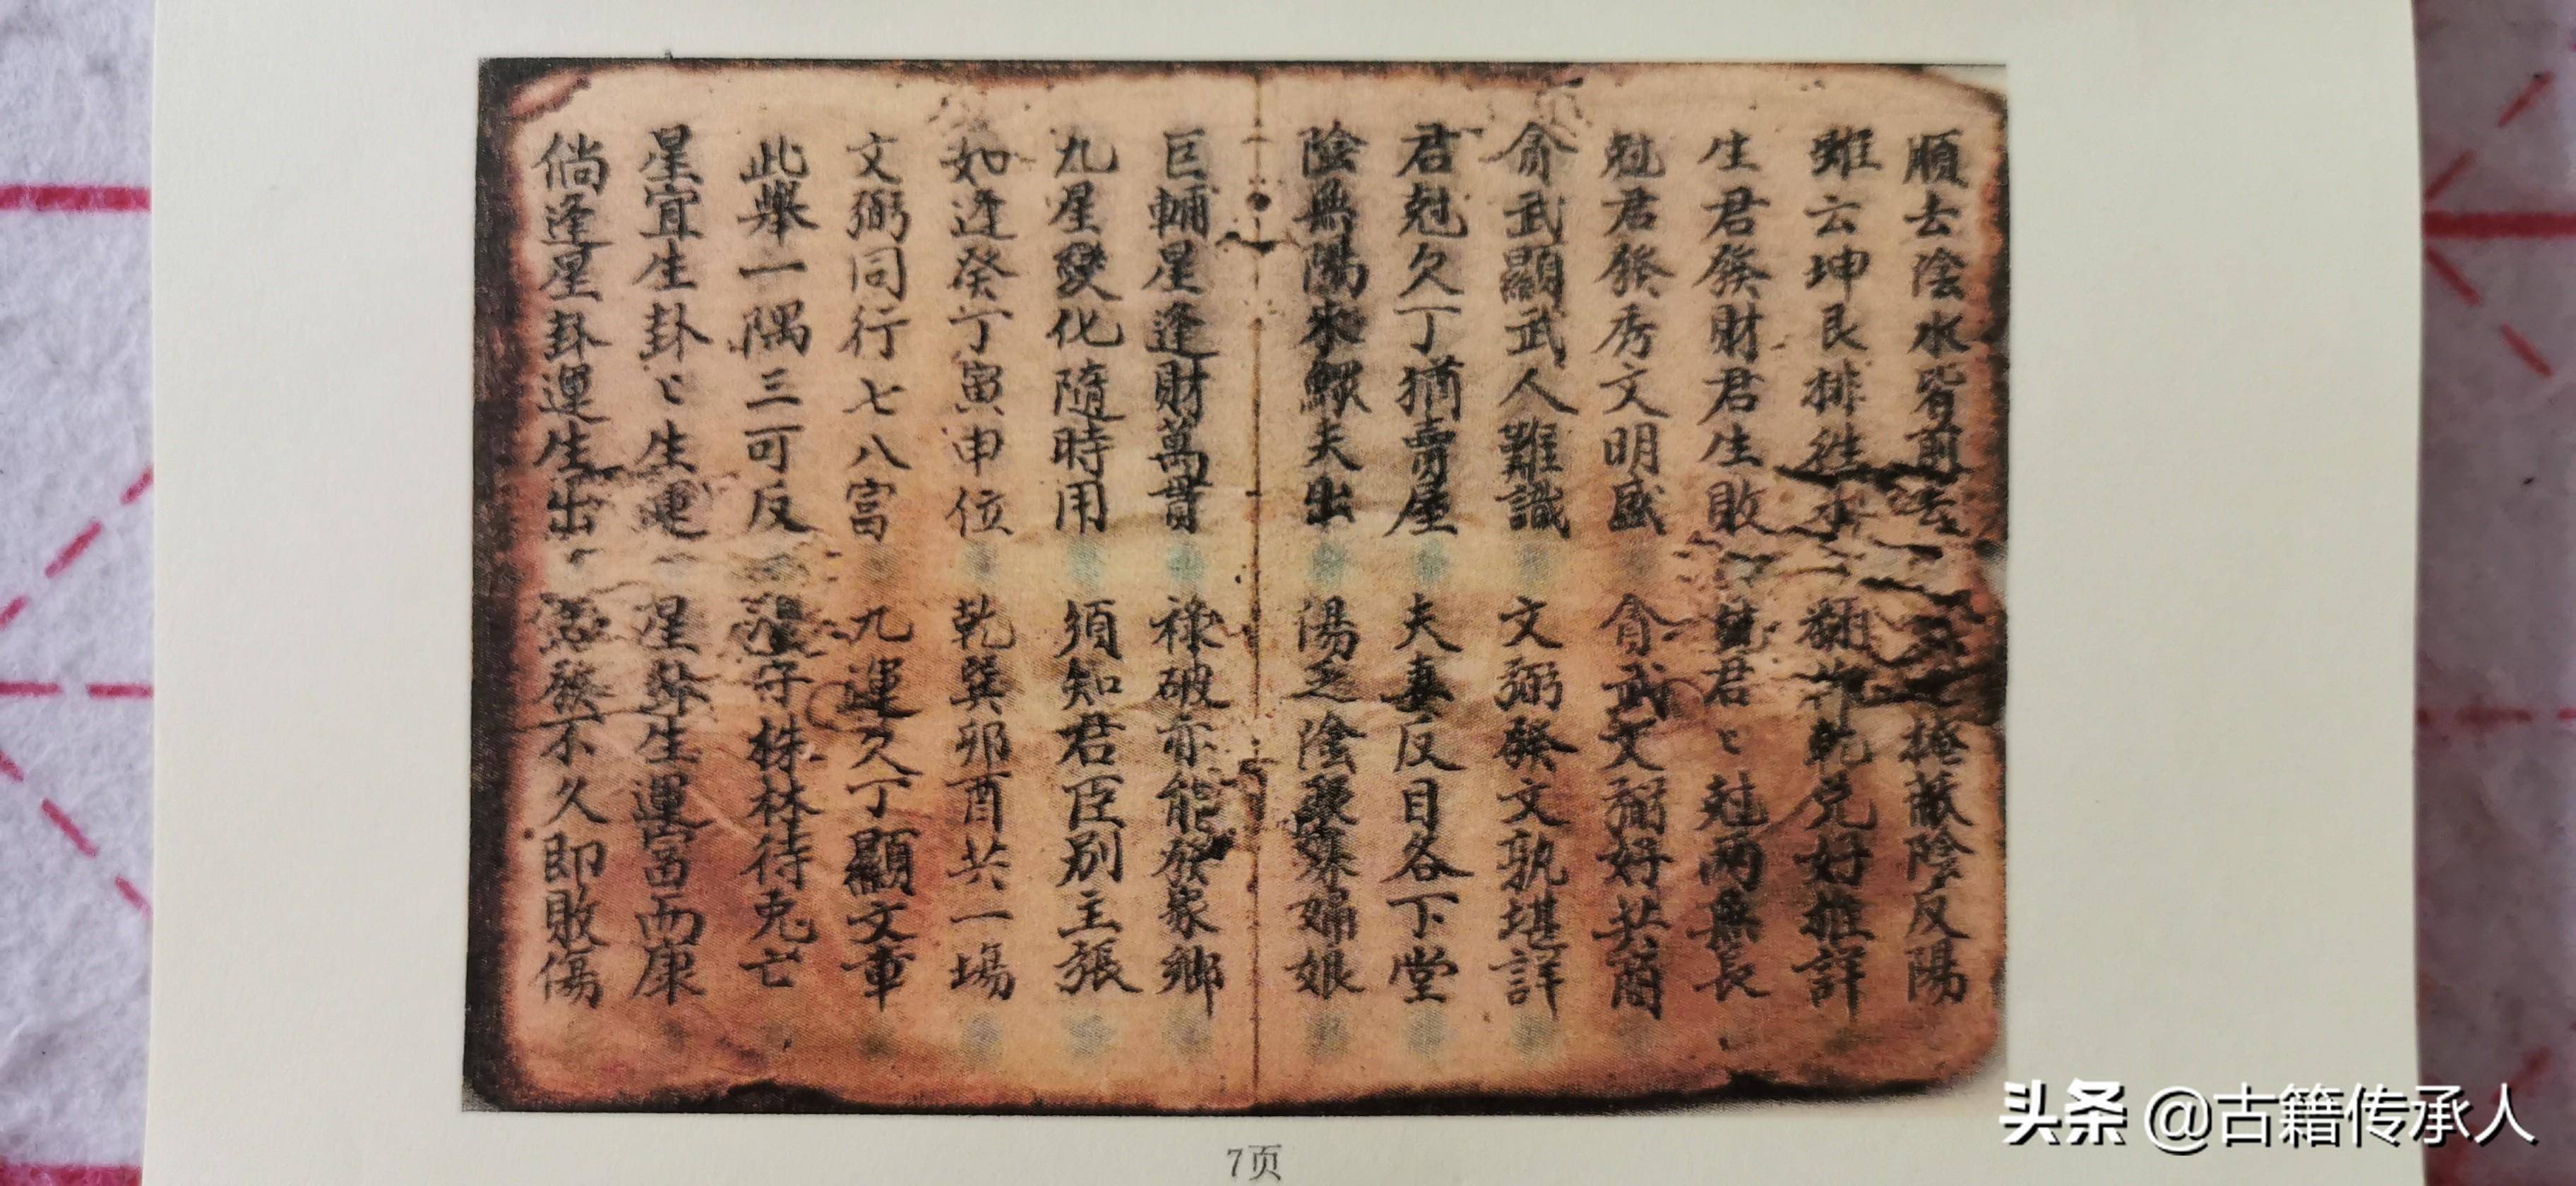 順去陰水皆前去 掩蔽陰反陽
雖云坤艮排 水 翻 乾兌好推詳
生君發財君生敗 君〻尅兩無長
尅君發秀文明盛 貪武文弼好共商
貪武顯武人難識 文弼發文孰堪詳
君尅欠丁猶賣屋 夫妻反目各下堂
陰無陽來鰥夫出 陽乏陰 孀娘
巨輔星逢財萬貫 祿破亦能發家鄉
九星變化隨時用 須知君臣別主張
如逆癸丁寅申位 乾巽卯酉共一場
文弼同行七八富 九運欠丁顯文章
此舉一隅三可反 守株林待兎亡
星宜生卦〻生運 星卦生運富而康
倘逢星卦運生出 發不久即敗傷
7页
头条 @古籍传承人